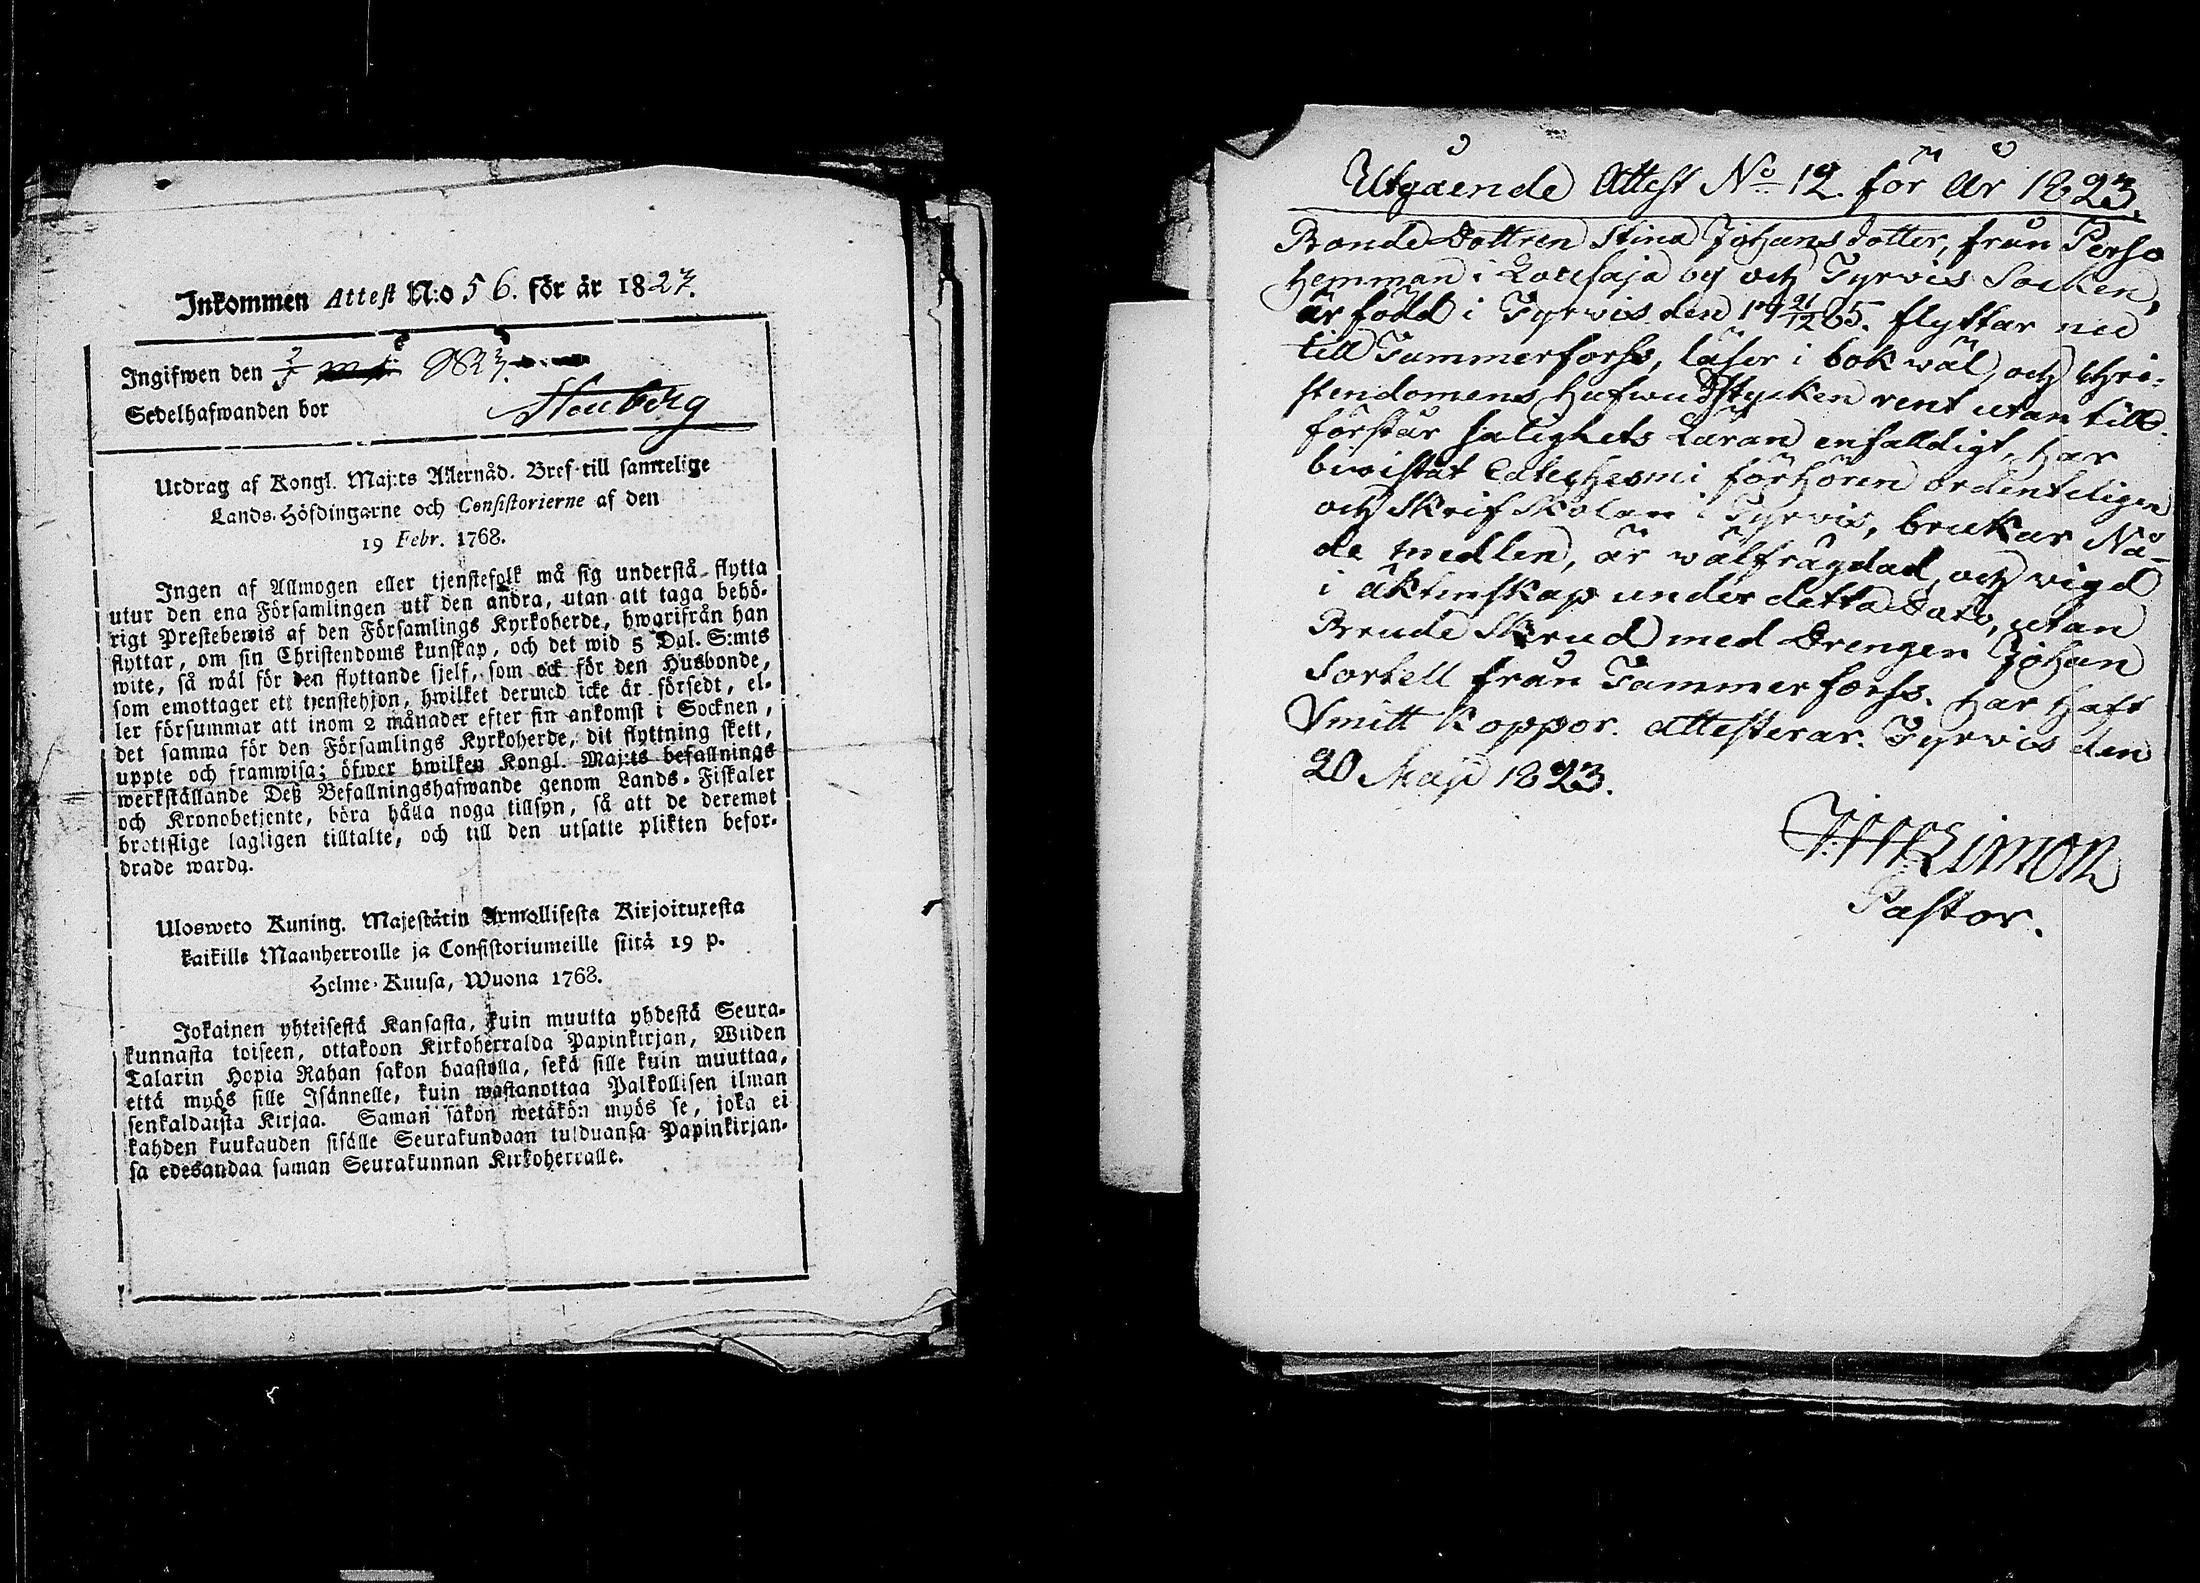 Inkommen Attest N:o 56. för år 1823.
Ingifwen den 1823.
Sedelhafwanden bor
Stenberg
Utdrag af Kongl. Maj:ts Allernåd. Bref till samtelige
Lands-Höfdingarne och Consistorierne af den
19 Febr. 1768.
Ingen af Allmogen eller tjenstefolk må sig understå flytta
utur den ena Församlingen uti den andra, utan att taga behö-
rigt Prestebewis af den Församlings Kyrkoherde, hwarifrån han
flyttar, om sin Christendoms kunskap, och det wid 5 Dal. S:mts
wite, så wäl för den flyttande sjelf, som ock för den Husbonde,
som emottager ett tjenstehjon, hwilket dermed icke är försedt, el-
ler försummar att inom 2 månader efter sin ankomst i Socknen,
det samma för den Församlings Kyrkoherde, dit flyttning skett,
uppte och framwisa; öfwer hwilken Kongl. Maj:ts befallnings
werkställande Deß Befallningshafwande genom Lands-Fiskaler
och Kronobetjente, böra hålla noga tillsyn, så att de deremot
brottslige lagligen tilltalte, och till den utsatte plikten befor-
drade warda.
Ulosweto Kuning. Majestätin Armollisesta Kirjoituxesta
kaikille Maanherroille ja Consistoriumeille siitä 19 p.
Helme-Kuusa, Wuona 1768.
Jokainen yhteisestä Kansasta, kuin muutta yhdestä Seura-
kunnasta toiseen, ottakoon Kirkoherralda Papinkirjan, Wiiden
Talarin Hopia Rahan sakon haastolla, sekä sille kuin muuttaa,
että myös sille Isännelle, kuin wastanottaa Palkollisen ilman
senkaldaista Kirjaa. Saman sakon wetäkön myös se, joka ei
kahden kuukauden sisälle Seurakundaan tulduansa Papinkirjan-
sa edesandaa saman Seurakunnan Kirkoherralle.
Utgående Attest No 12. för År 1823.
Bonde Dottren Stina Johansdotter, från Perho
Hemman i by och Tyrvis Socken,
är född i Tyrvis den 17 21/12 85. flyttar nu
till Tammerforss, läser i bok wäl, och Chri-
stendomens Hufwudstycken rent utan till.
förstår salighets Läran enfaldigt, har
bewistat Catechesmi förhören ordenteligen
och Skrif Skolan i Tyrvis, brukar Nå-
de medlen, är wälfrägdad, och wigd
i äktenskap under detta Dato, utan
Brude Skrud med Drengen Johan
Sortell från Tammerforss. har haft
Smitt Koppor. attesterar. Tyrvis den
20 Maji 1823.
Limon
Pastor.